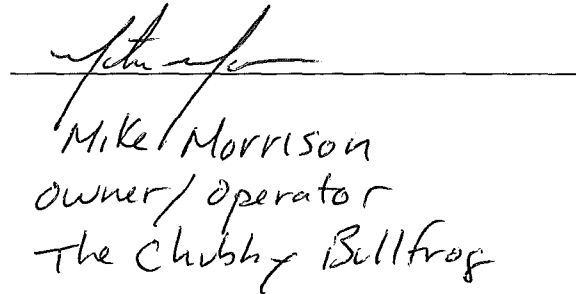 Mike Morrison
owner/operator
The Chubby Bullfrog